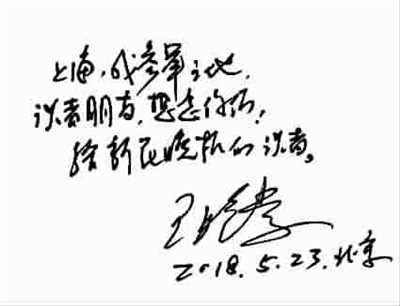 上海,我参军之地,
读者朋友,想念你们!
给新民晚报的读者。
王晓棠
2018.5.23.北京